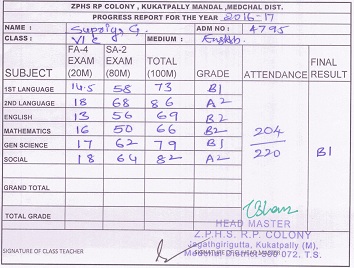 ZPHS RP COLONY , KUKATPALLY MANDAL ,MEDCHAL DIST.
PROGRESS REPORT FOR THE YEAR 2016-17
NAME : Supriya G. ADM NO : 4795
CLASS : VI C MEDIUM : English.
SUBJECT FA-4 EXAM (20M) SA-2 EXAM (80M) TOTAL (100M) GRADE ATTENDANCE FINAL RESULT
1ST LANGUAGE 14.5 58 73 B1
2ND LANGUAGE 18 68 86 A2
ENGLISH 13 56 69 B2
MATHEMATICS 16 50 66 B2 204
GEN SCIENCE 17 62 79 B1 220 B1
SOCIAL 18 64 82 A2
GRAND TOTAL
TOTAL GRADE
HEAD MASTER
Z.P.H.S. R.P. COLONY
Jagathgirigutta, Kukatpally (M),
072. T.S.
SIGNATURE OF CLASS TEACHER